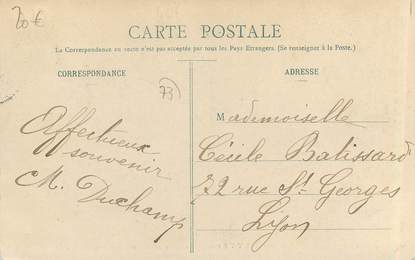 20 €
CARTE POSTALE
La Correspondance au recto n'est pas acceptée par tous les Pays Etrangers. (Se renseigner à la Poste.)
CORRESPONDANCE
73
Affectueux
souvenir
M. Duchamp
ADRESSE
Mademoiselle
Cécile Batissard
72 rue St Georges
Lyon